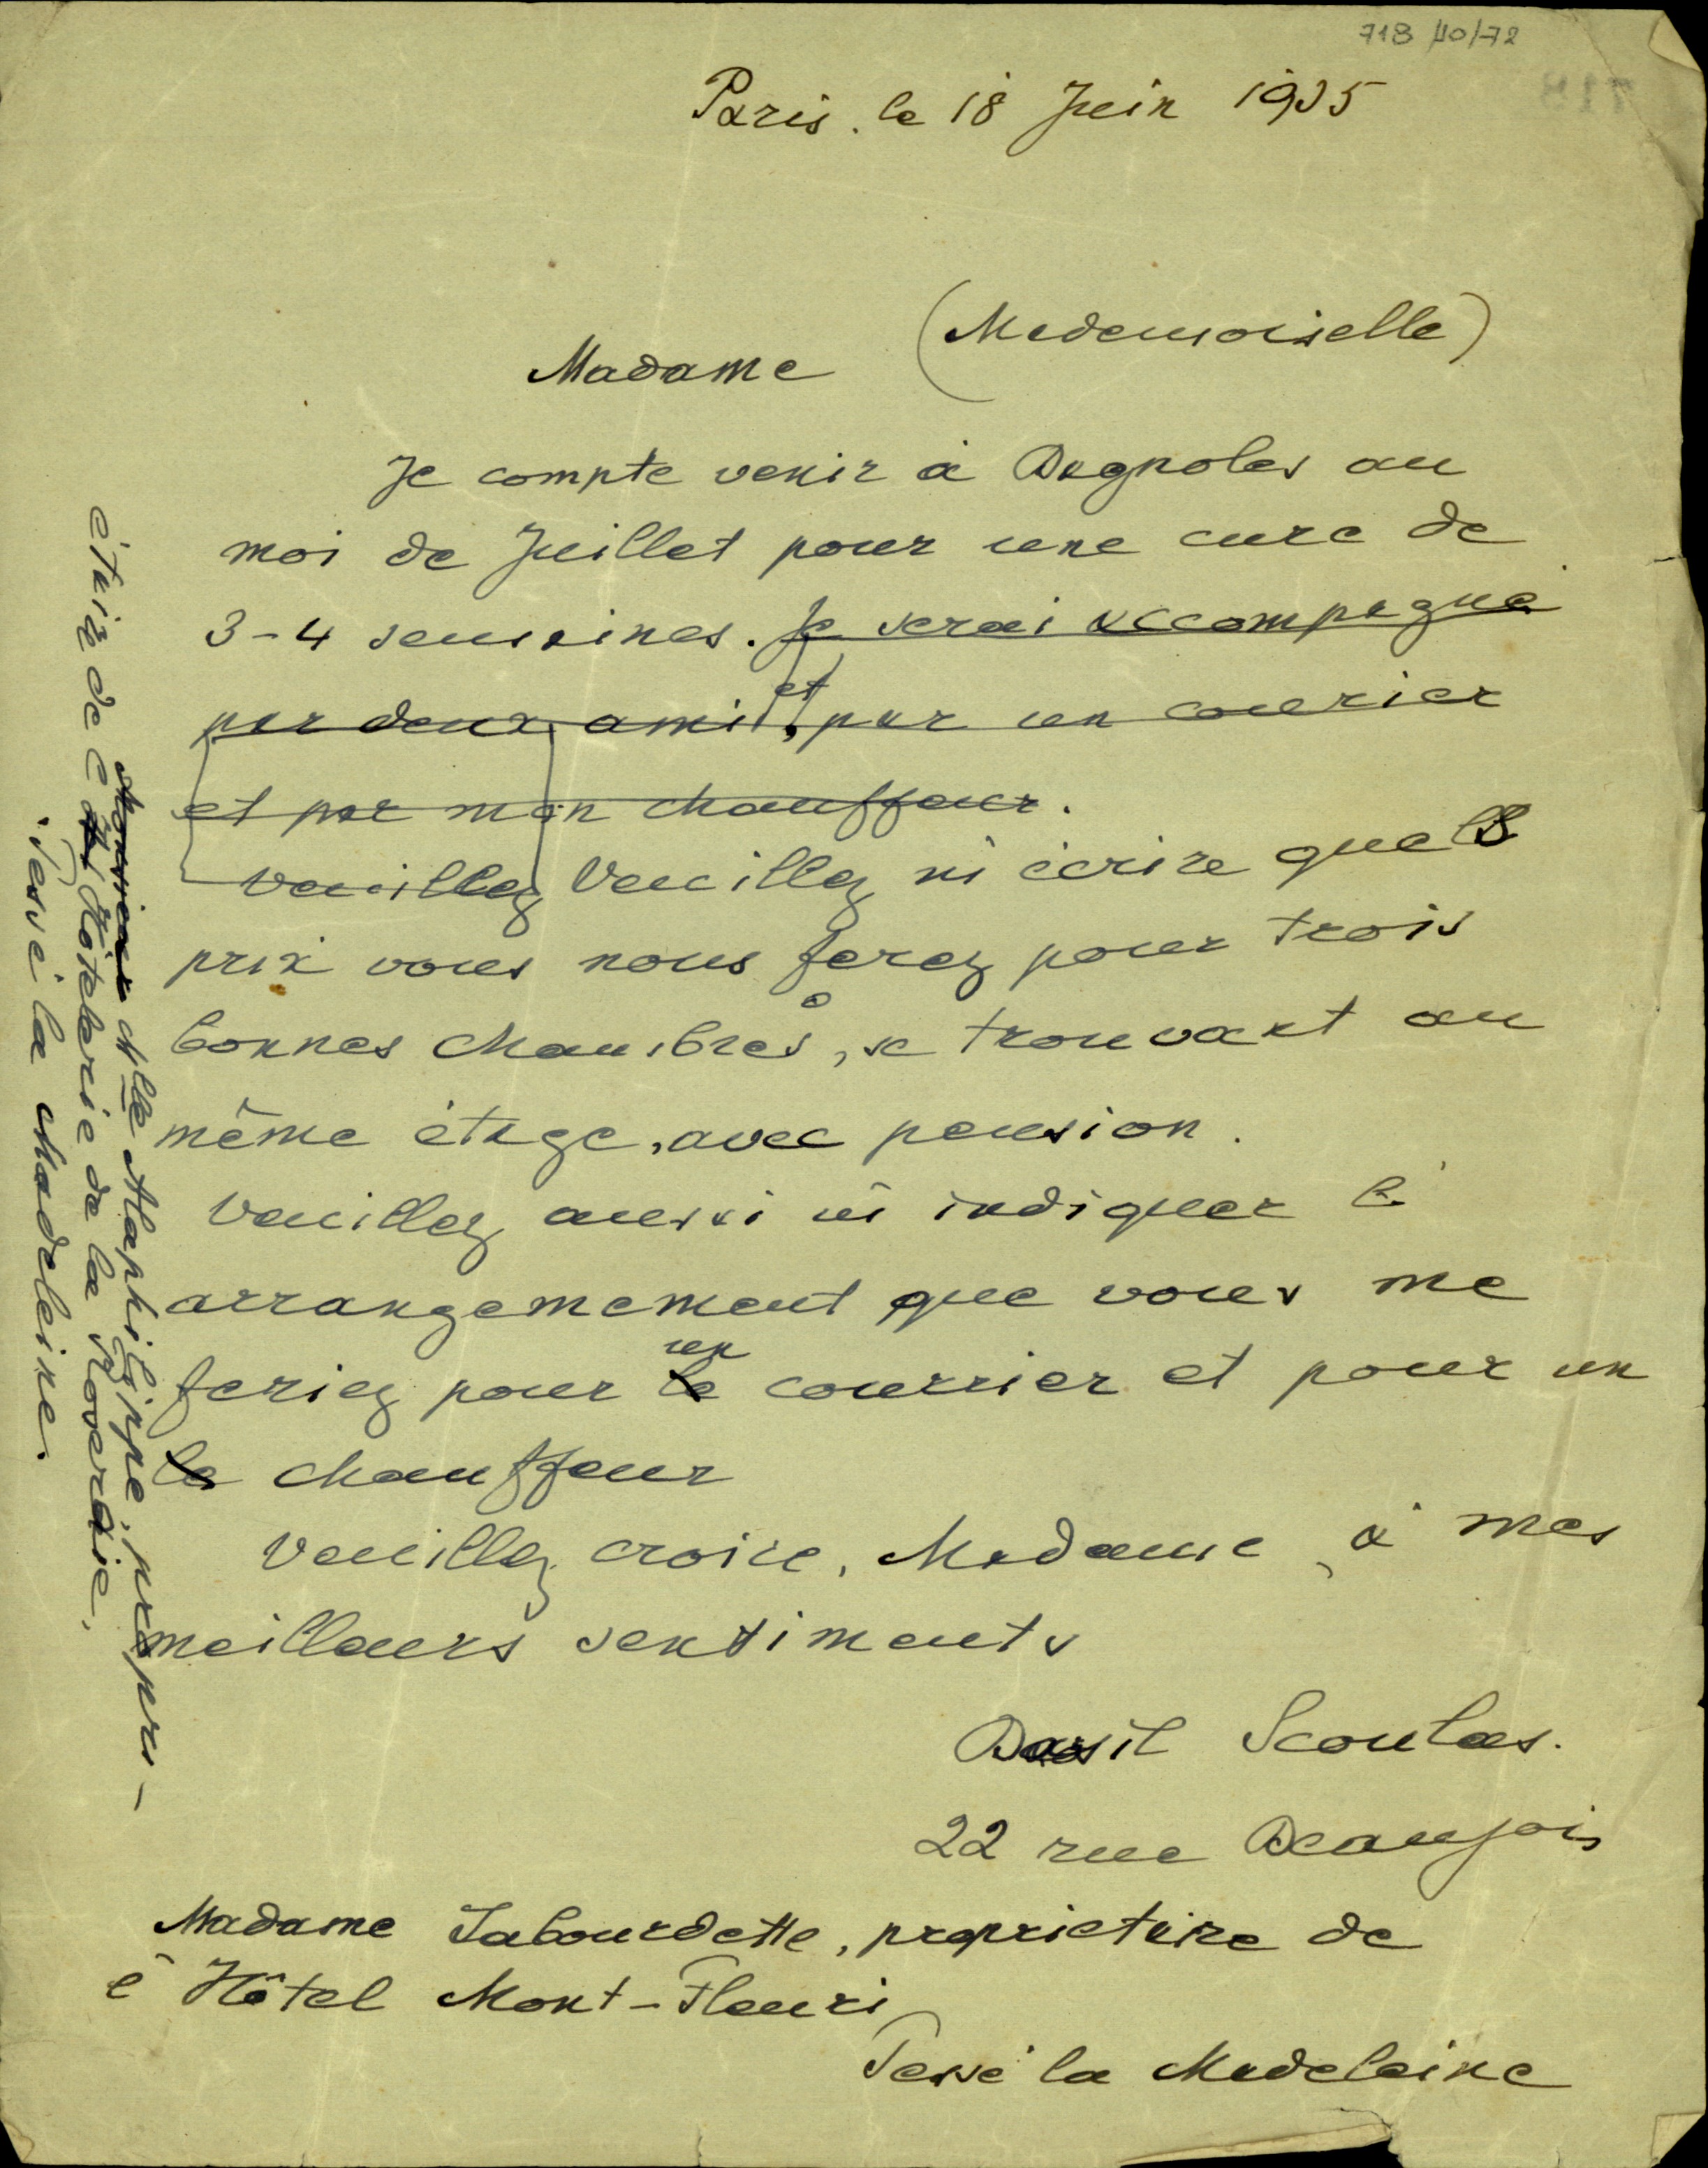 718/10/72
Paris. le 18 Juin 1935
(Mademoiselle)
Madame
Je compte venir à Bagnoles au
moi de Juillet pour une cure de
3-4 semaines. Je serai accompagné
par deux amis, et par un courier
et par mon chauffeur.
Veuillez Veuillez m'écrire quels
prix vous nous ferez pour trois
bonnes chambres, se trouvant au
même étage, avec pension.
Veuillez aussi m'indiquer l'
arrangemement que vous me
feriez pour le un courrier et pour un
le chauffeur
Veuillez croire, Madame, à mes
meilleurs sentiments
Basil Scoulas.
22 rue Beaujois
Madame Labourdette, proprietaire de
l'Hôtel Mont-Fleuri
Tessé la Madeleine
Monsieur Mlle Alaphilippe, propri-
étaire de l'Hôtelerie de la Roseraie,
Tessé la Madeleine.